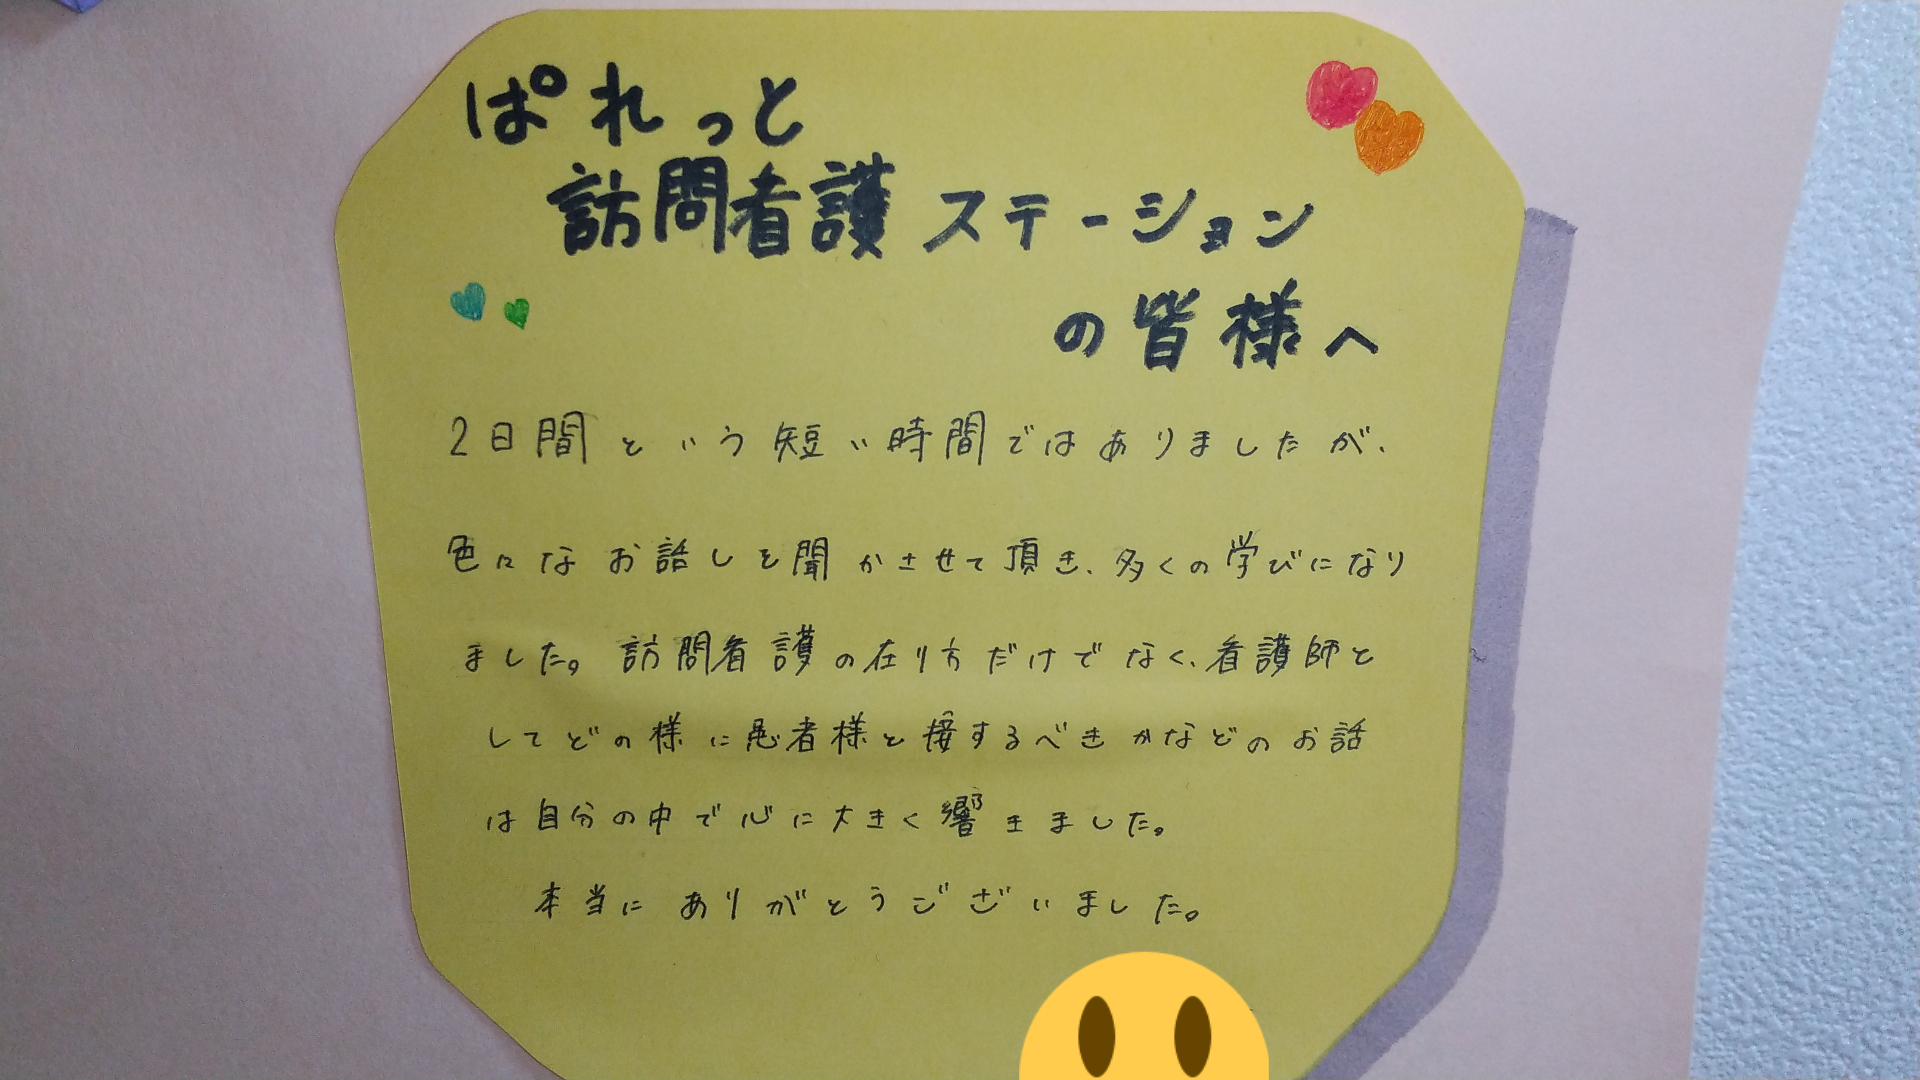 ぱれっと
訪問看護ステーション
の皆様へ
2日間という短い時間ではありましたが、
色々なお話しを聞かさせて頂き、多くの学びになり
ました。訪問看護の在り方だけでなく、看護師と
してどの様に患者様と接するべきかなどのお話
は自分の中で心に大きく響きました。
本当にありがとうございました。